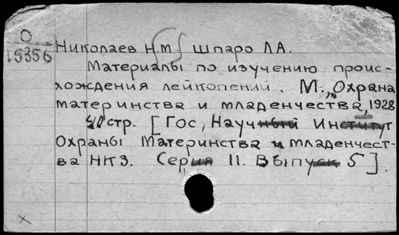 О
15356
Николаев Н.М. Шпаро Л.А.
Материалы по изучению проис-
хождения лейкопений. М., "Охрана
материнства и младенчества, 1928
40 стр. [Гос, Научный Институт
Охраны Материнства и Младенчест-
ва НКЗ. Серия II. Выпуск 5].
x